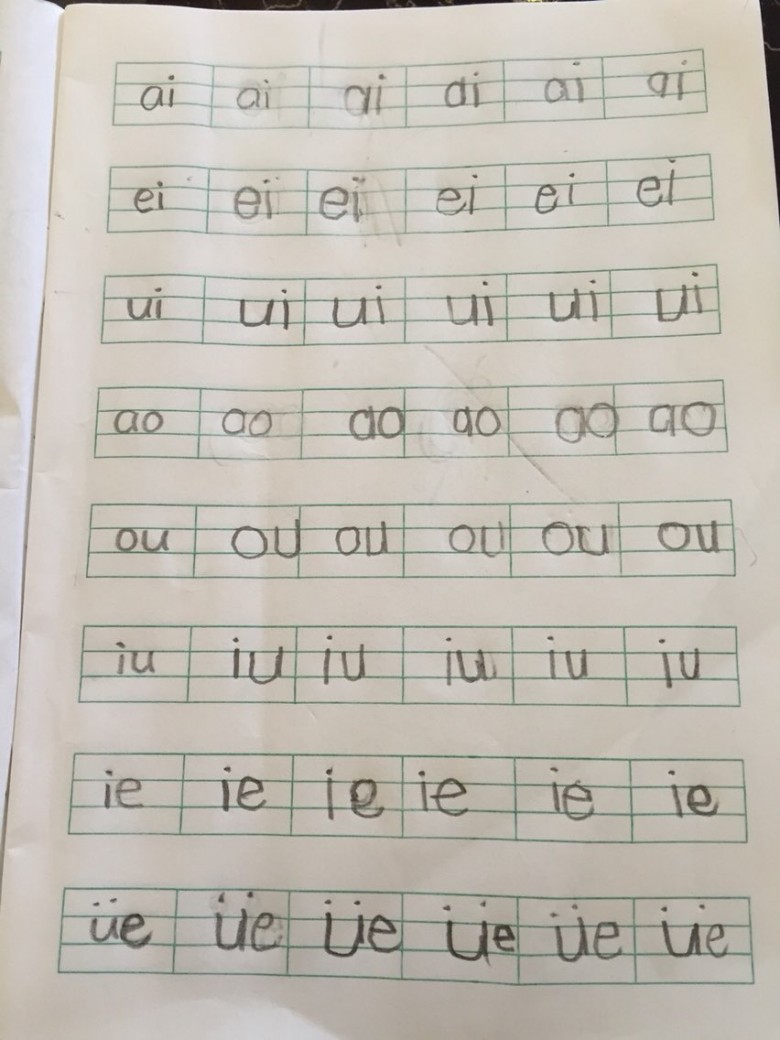 ai ai ai ai ai ai
ei ei ei ei ei ei
ui ui ui ui ui ui
ao ao ao ao ao ao
ou ou ou ou ou ou
iu iu iu iu iu iu
ie ie ie ie ie ie
üe üe üe üe üe üe